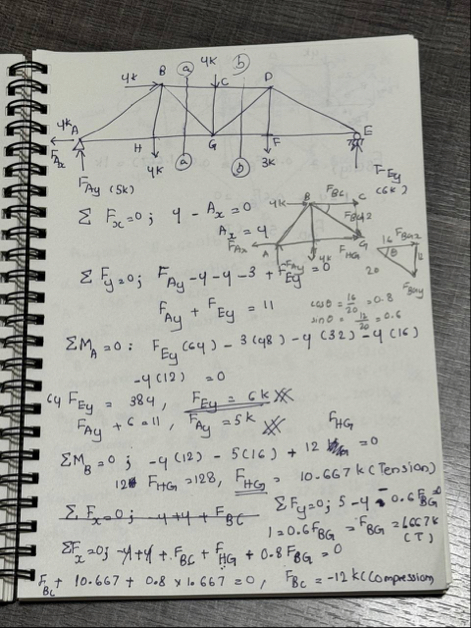 4k B a 4k C b D
4k A H G F E
F_Ax 4k 3k
F_Ay (5k) F_Ey (6k)
Σ F_x=0; 4 - A_x=0
A_x = 4
4k B F_BC C
F_BG
F_Ax A F_Ay 4k F_HG G
16 θ 20
Σ F_y=0; F_Ay - 4 - 4 - 3 + F_Ey = 0
cosθ = 16/20 = 0.8
F_Ay + F_Ey = 11
sinθ = 12/20 = 0.6
ΣM_A=0; F_Ey (64) - 3(48) - 4(32) - 4(16)
- 4(12) = 0
64 F_Ey = 384, F_Ey = 6k
F_Ay + 6 = 11, F_Ay = 5k
F_HG
ΣM_B=0; -4(12) - 5(16) + 12 = 0
12 F_HG = 128, F_HG = 10.667k (Tension)
Σ F_x=0; -4+4 + F_BC
ΣF_y=0; 5 - 4 - 0.6F_BG=0
1 = 0.6F_BG = F_BG = 1.667k
(T)
ΣF_x=0; -4+4 + F_BC + F_HG + 0.8F_BG = 0
F_BC + 10.667 + 0.8 x 1.667 = 0, F_BC = -12k (Compression)